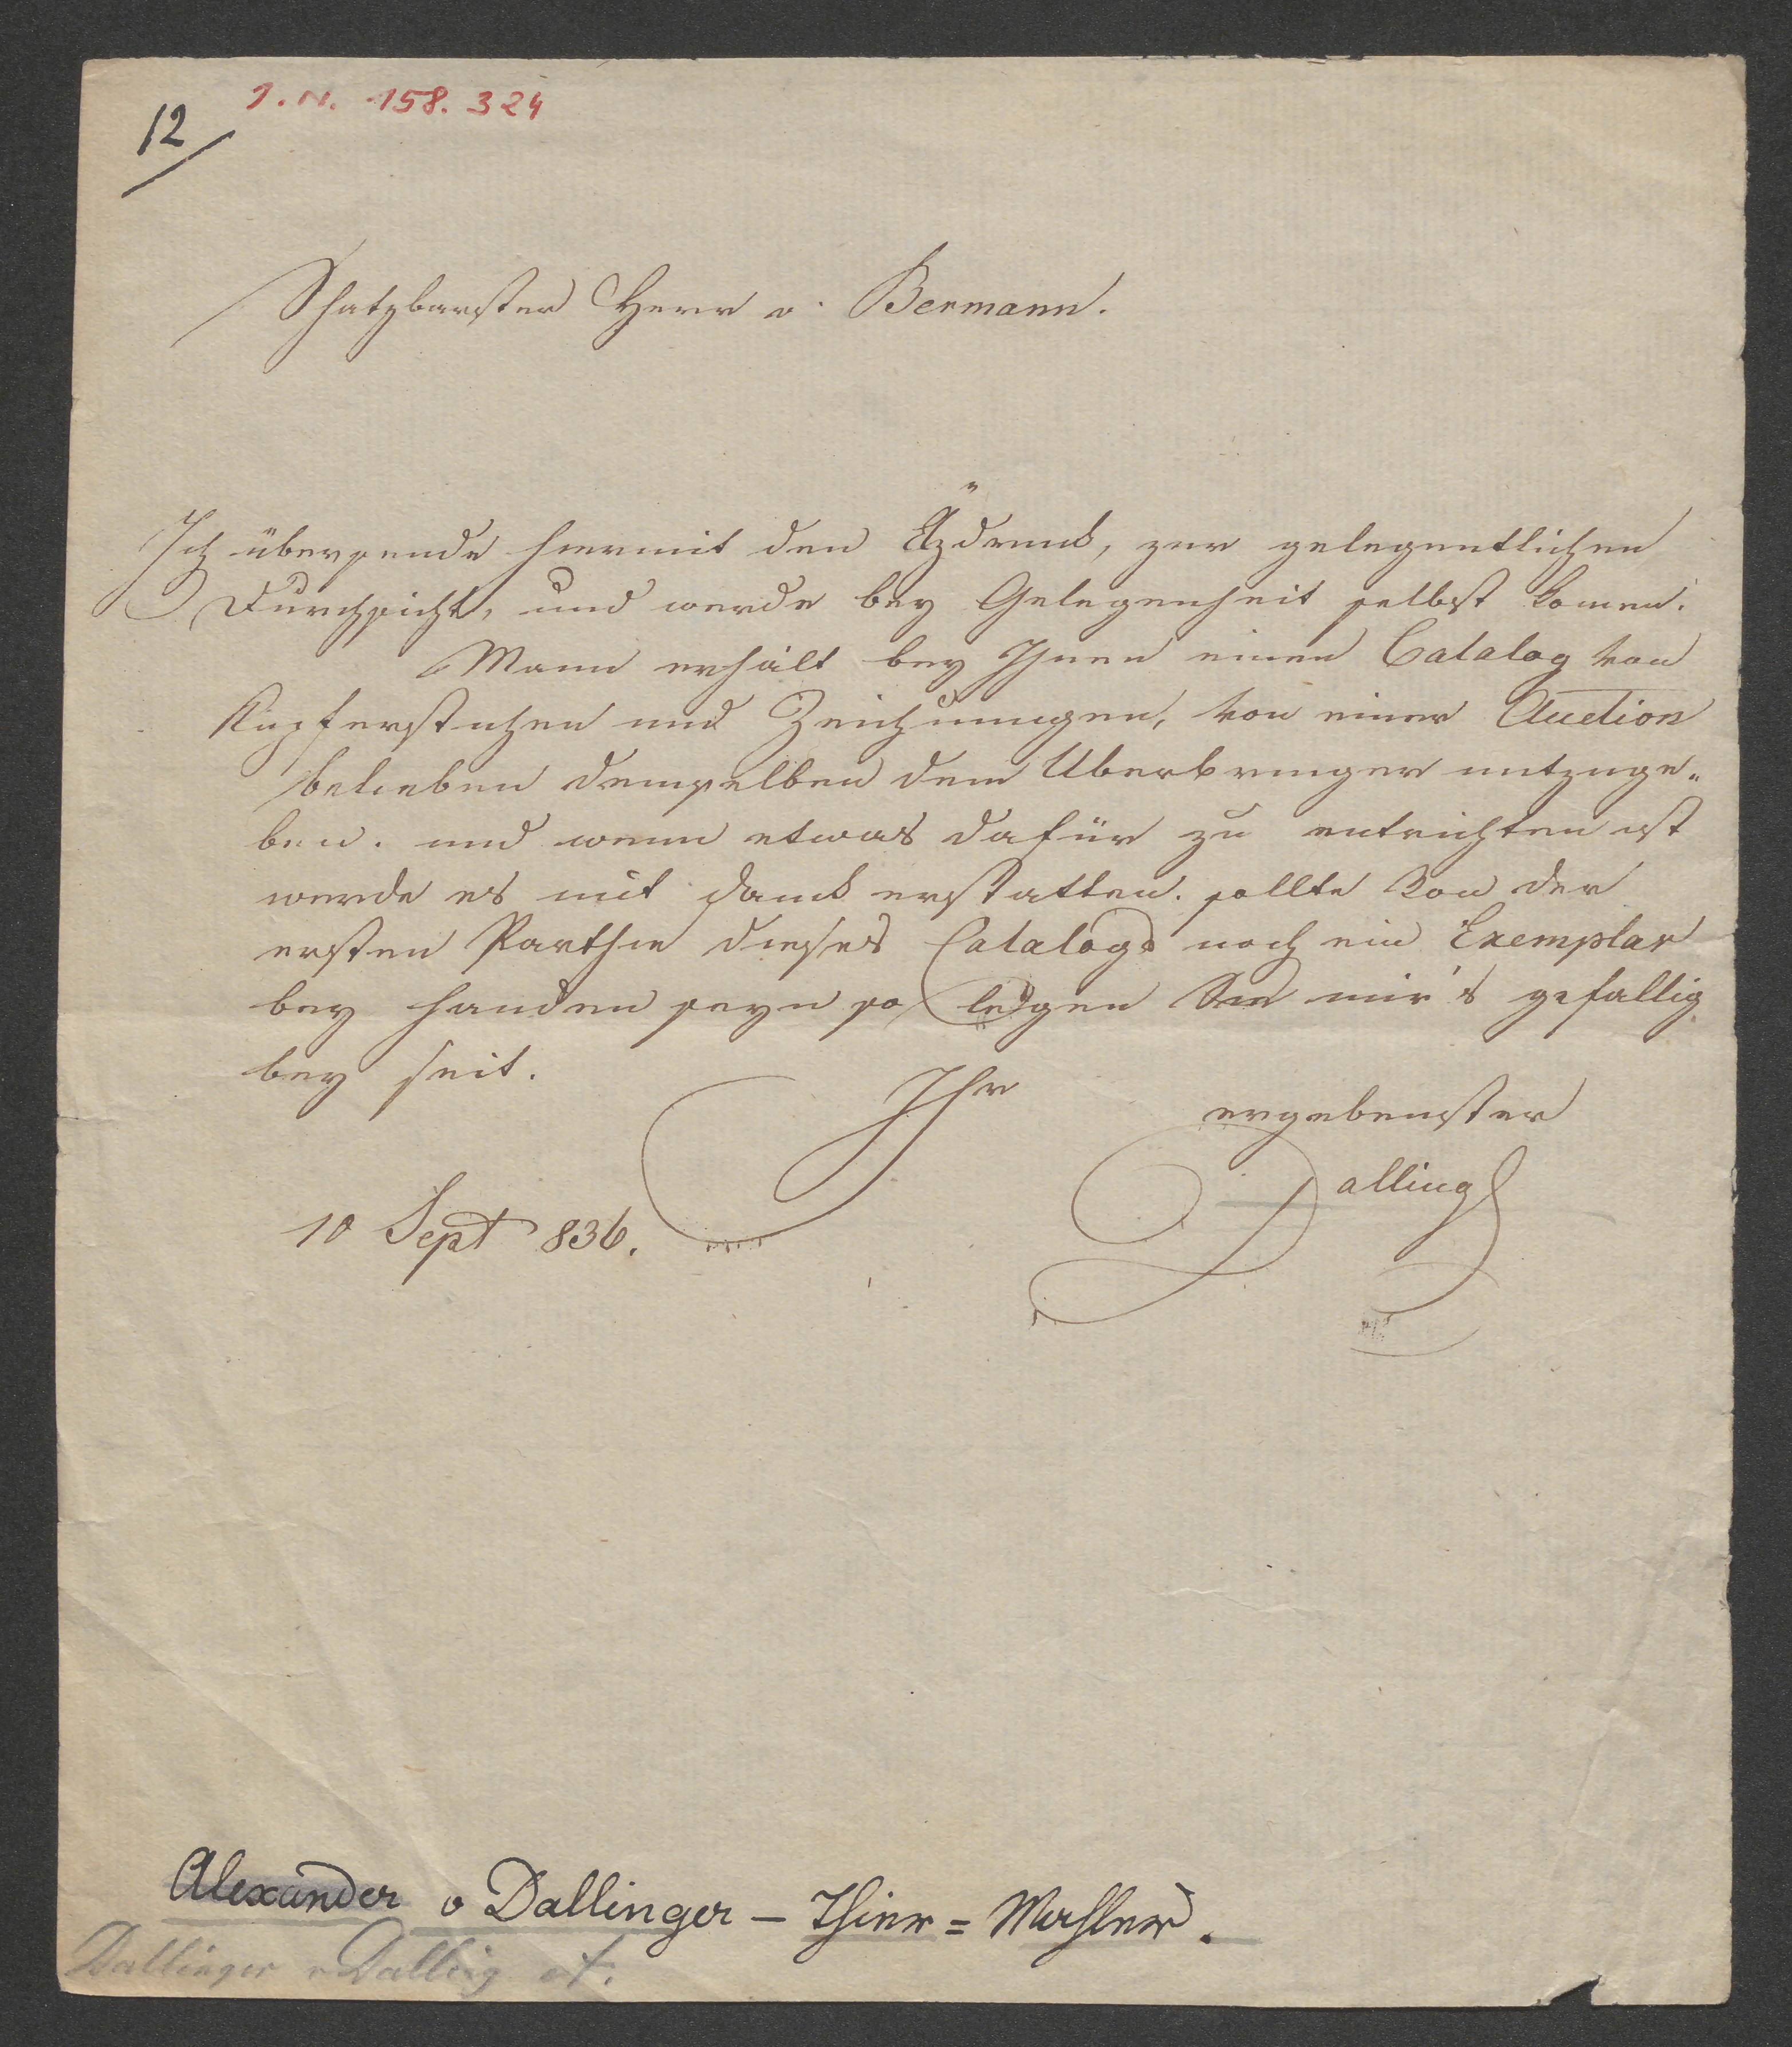 12
I. N. 158.324
Schatzbarster Herr v. Bermann.
Ich übersende hiermit den Äzdruck, zur gelegentlichen
Durchsicht, und werde bey Gelegenheit selbst komen.
Mann erhält bey Ihnen einen Catalog von
Kupferstichen und Zeichnungen, von einer Auction
belieben demselben dem Uberbringer mitzuge„
ben. und wenn etwas dafür zu entrichten ist
werde es mit Dank erstatten. sollte von der
ersten Parthie dieses Catalogs noch ein Exemplar
bey handen seyn so legen Sie mir's gefallig
bey seit.
Ihr
ergebenster
Dalling
10 Sept 836.
Alexander v Dallinger – Thier = Mahler.
Dallinger v Dalling